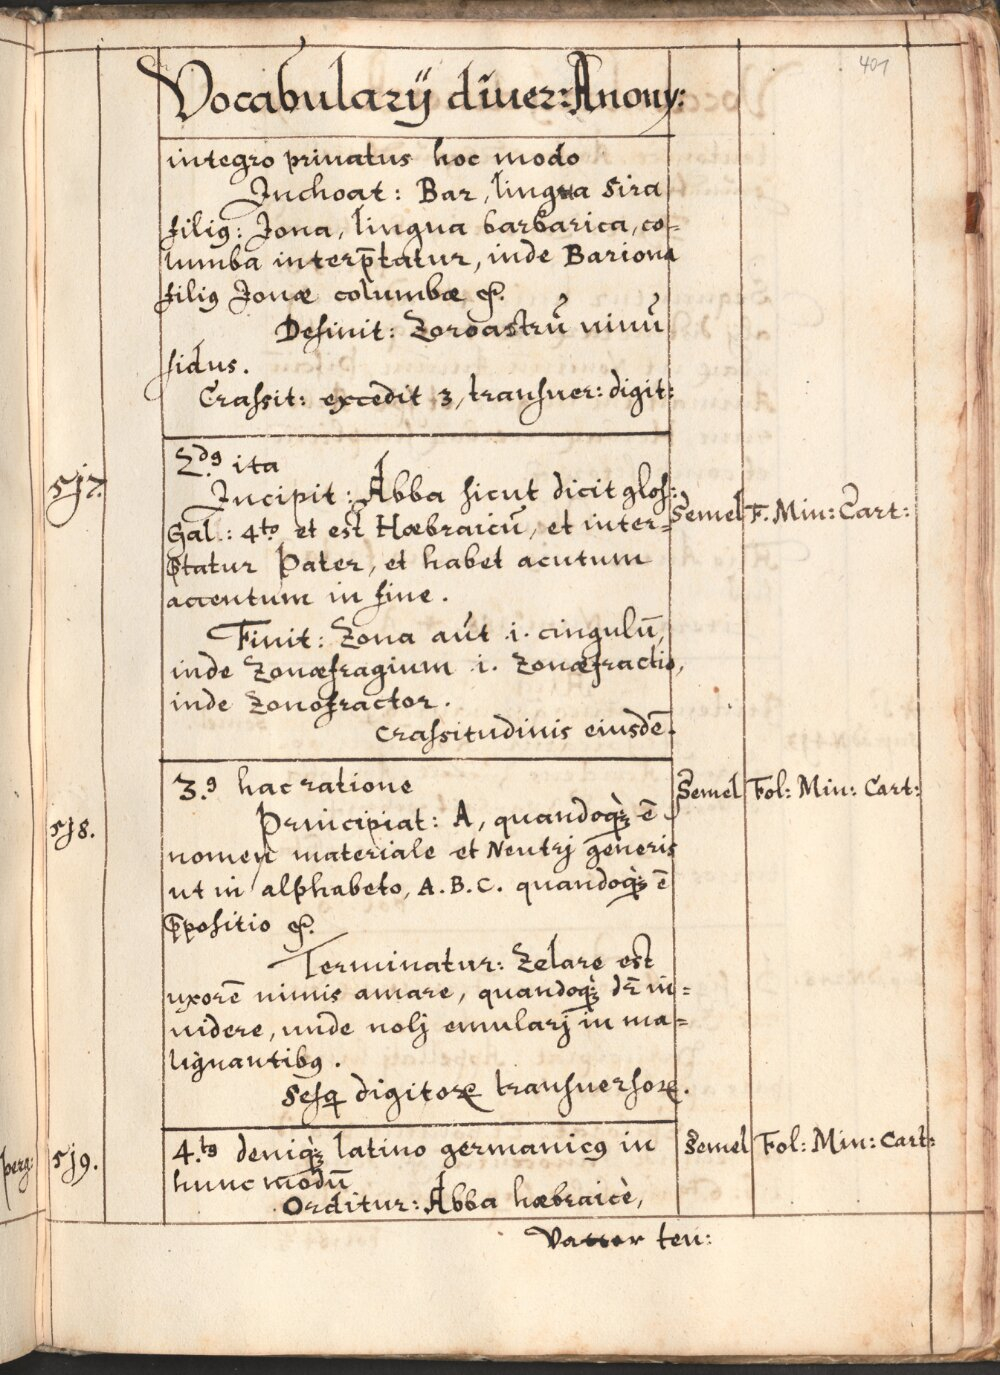 401
Vocabularÿ diuer: Anony:
integro priuatus hoc modo
Inchoat: Bar, lingua Sira
filiꝰ: Jona, lingua barbarica, co=
lumba interp̄tatur, inde Bariona
filiꝰ Jonæ columbæ &.
Definit: Zoroastrū uiuū
sidus.
Crassit: excedit 3, transuer: digit:
517.
2.dꝰ ita
Incipit: Abba sicut dicit glos:
Semel F. Min: Cart:
Gal.: 4.to et est Hæbraicū, et inter=
p̄tatur Pater, et habet acutum
accentum in fine.
Finit: Zona aút .i. cingulū,
inde Zonæfragium .i. zonæfractio,
inde zonofractor.
Crassitudinis eiusdē.
3.ꝰ hac ratione
Semel Fol: Min: Cart:
518.
Principiat: A, quandoq̀ꝫ ē
nomen materiale et Neutrj generis
ut in alphabeto, A. B. C. quandoq̀ꝫ ē
p̄positio &.
Terminatur: Zelare est
uxorē nimis amare, quandoq̀ꝫ dr̄ in=
uidere, unde nolj emularj in ma=
lignantibꝰ.
Sesq digitoꝝ transuersoꝝ.
perg:
519.
4.tꝰ deniq̀ꝫ latino germanicꝰ in
Semel Fol: Min: Cart:
hunc modū
Orditur: Abba hæbraicè,
Vatter teu: